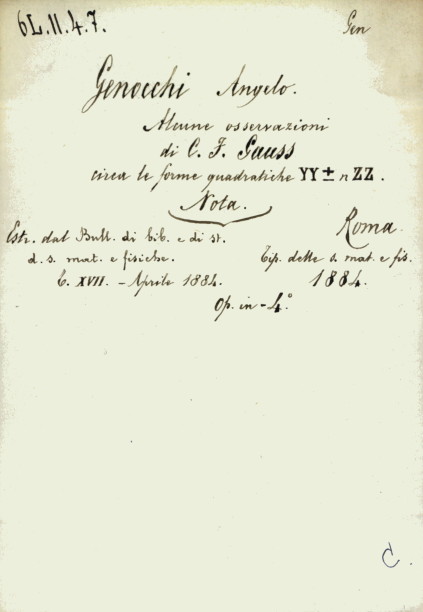 6L.II.4.7.
Gen
Genocchi Angelo.
Alcune osservazioni
di C. F. Gauss
circa le forme quadratiche YY ± nZZ.
Nota.
Estr. dal Bull. di bib. e di st.
d. s. mat. e fisiche.
t. XVII. - Aprile 1884.
Roma.
Tip. delle s. mat. e fis.
1884.
Op. in - 4.º
C.